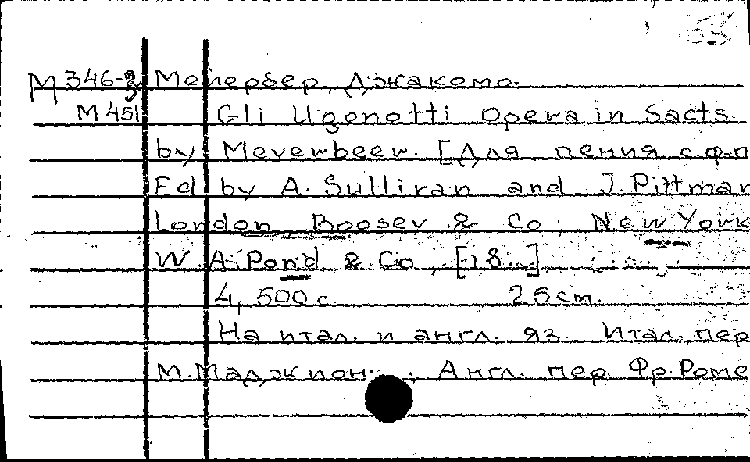 М346-3 Мейербер, Джакомо.
М451 Gli Ugonotti Opera in 5acts.
by Meyerbeer. [Для пения с ф-п
Ed by A. Sullivan and J. Pittman
London, Boosey & Co, New York
W. A. Pond & Co, [18...]
4, 500 с. 26 cm.
На итал. и англ. яз. Итал. пер
М. Англ. пер. Фр. Роме